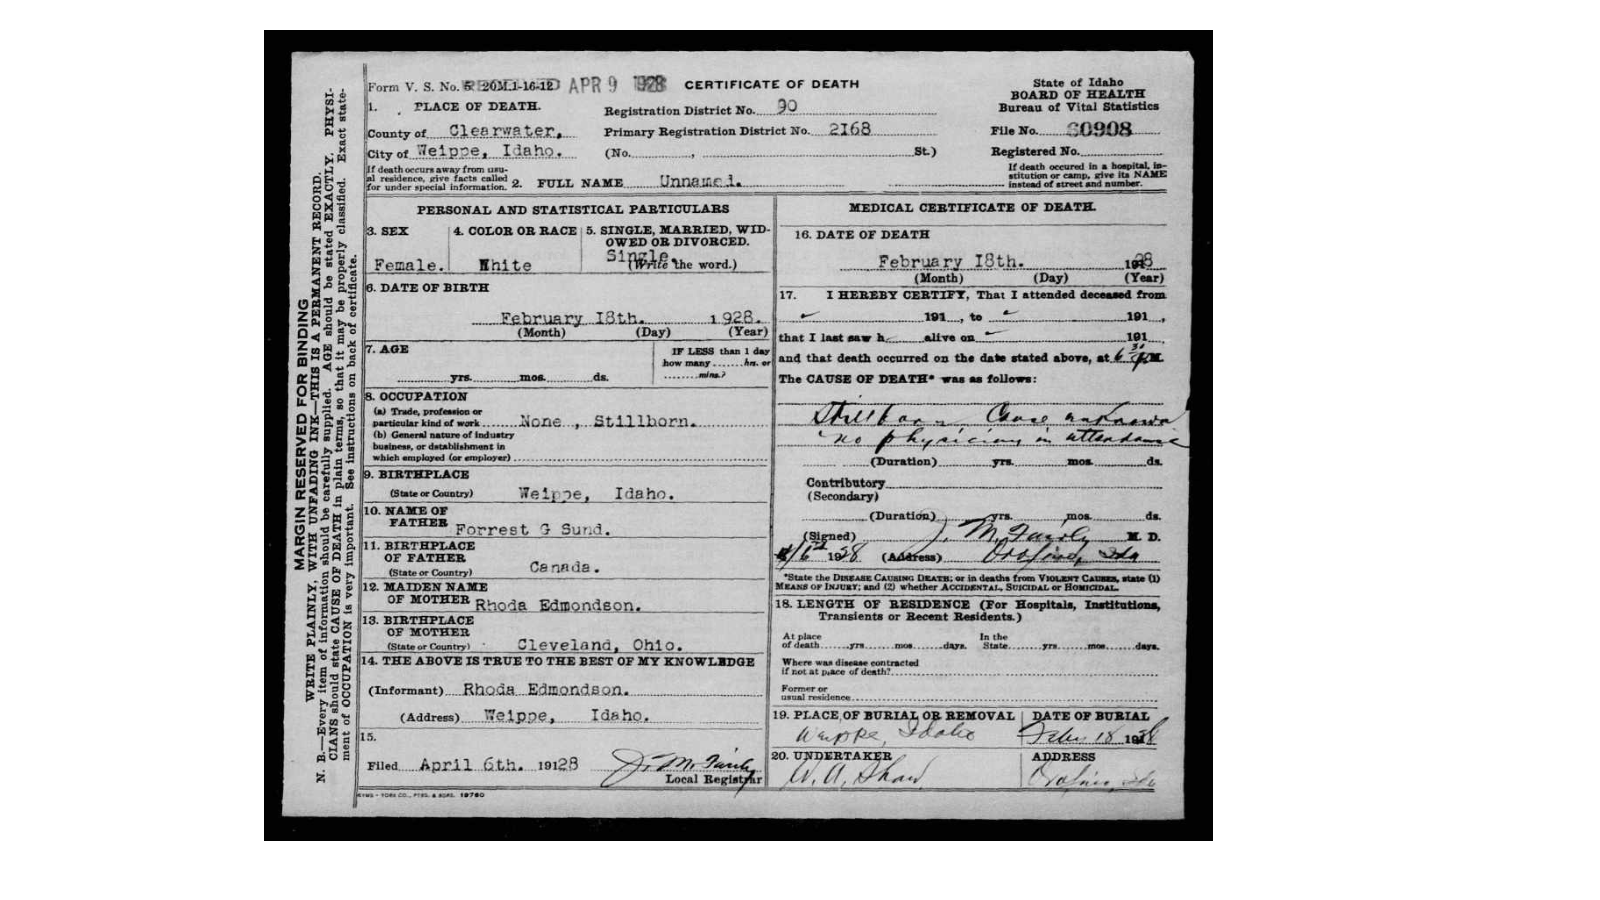 Form V. S. No. 5 20M.1-16-12 RECEIVED APR 9 1928 CERTIFICATE OF DEATH
State of Idaho
BOARD OF HEALTH
Bureau of Vital Statistics
File No. 60908
Registered No.
If death occured in a hospital, in-
stitution or camp, give its NAME
instead of street and number.
1. PLACE OF DEATH.
Registration District No. 90
County of Clearwater,
Primary Registration District No. 2168
City of Weippe, Idaho.
(No. , St.)
If death occurs away from usu-
al residence, give facts called
for under special information.
2. FULL NAME Unnamed.
PERSONAL AND STATISTICAL PARTICULARS
3. SEX
Female.
4. COLOR OR RACE
White
5. SINGLE, MARRIED, WID-
OWED OR DIVORCED.
Single.
(Write the word.)
6. DATE OF BIRTH
February 18th. 1928.
(Month) (Day) (Year)
7. AGE
yrs. mos. ds.
IF LESS than 1 day
how many hrs. or
mins.?
8. OCCUPATION
(a) Trade, profession or
particular kind of work None , Stillborn.
(b) General nature of industry
business, or establishment in
which employed (or employer)
9. BIRTHPLACE
(State or Country) Weippe, Idaho.
10. NAME OF
FATHER Forrest G Sund.
11. BIRTHPLACE
OF FATHER
(State or Country) Canada.
12. MAIDEN NAME
OF MOTHER Rhoda Edmondson.
13. BIRTHPLACE
OF MOTHER
(State or Country) Cleveland, Ohio.
14. THE ABOVE IS TRUE TO THE BEST OF MY KNOWLEDGE
(Informant) Rhoda Edmondson.
(Address) Weippe, Idaho.
15.
Filed April 6th. 19128 J. M. Fairly
Local Registrar
MEDICAL CERTIFICATE OF DEATH.
16. DATE OF DEATH
February 18th. 1928
(Month) (Day) (Year)
17. I HEREBY CERTIFY, That I attended deceased from
191 , to 191 ,
that I last saw h alive on 191 ,
and that death occurred on the date stated above, at 6 30 P.M.
The CAUSE OF DEATH* was as follows:
Stillborn Cause unknown
no physician in attendance
(Duration) yrs. mos. ds.
Contributory
(Secondary)
(Duration) yrs. mos. ds.
(Signed) J. M. Fairly M. D.
4/6th 1928 (Address) Orofino, Ida
*State the DISEASE CAUSING DEATH; or in deaths from VIOLENT CAUSES, state (1)
MEANS OF INJURY; and (2) whether ACCIDENTAL, SUICIDAL or HOMICIDAL.
18. LENGTH OF RESIDENCE (For Hospitals, Institutions,
Transients or Recent Residents.)
At place
of death yrs mos days. In the
State yrs mos days.
Where was disease contracted
if not at place of death?
Former or
usual residence
19. PLACE OF BURIAL OR REMOVAL
Weippe, Idaho
DATE OF BURIAL
Feb. 18 1928
20. UNDERTAKER
W. A. Shaw
ADDRESS
Orofino, Ida
SYMS - YORK CO., PTRS. & BDRS. 19760
MARGIN RESERVED FOR BINDING
WRITE PLAINLY, WITH UNFADING INK—THIS IS A PERMANENT RECORD.
N. B.—Every item of information should be carefully supplied. AGE should be stated EXACTLY. PHYSI-
CIANS should state CAUSE OF DEATH in plain terms, so that it may be properly classified. Exact state-
ment of OCCUPATION is very important. See instructions on back of certificate.